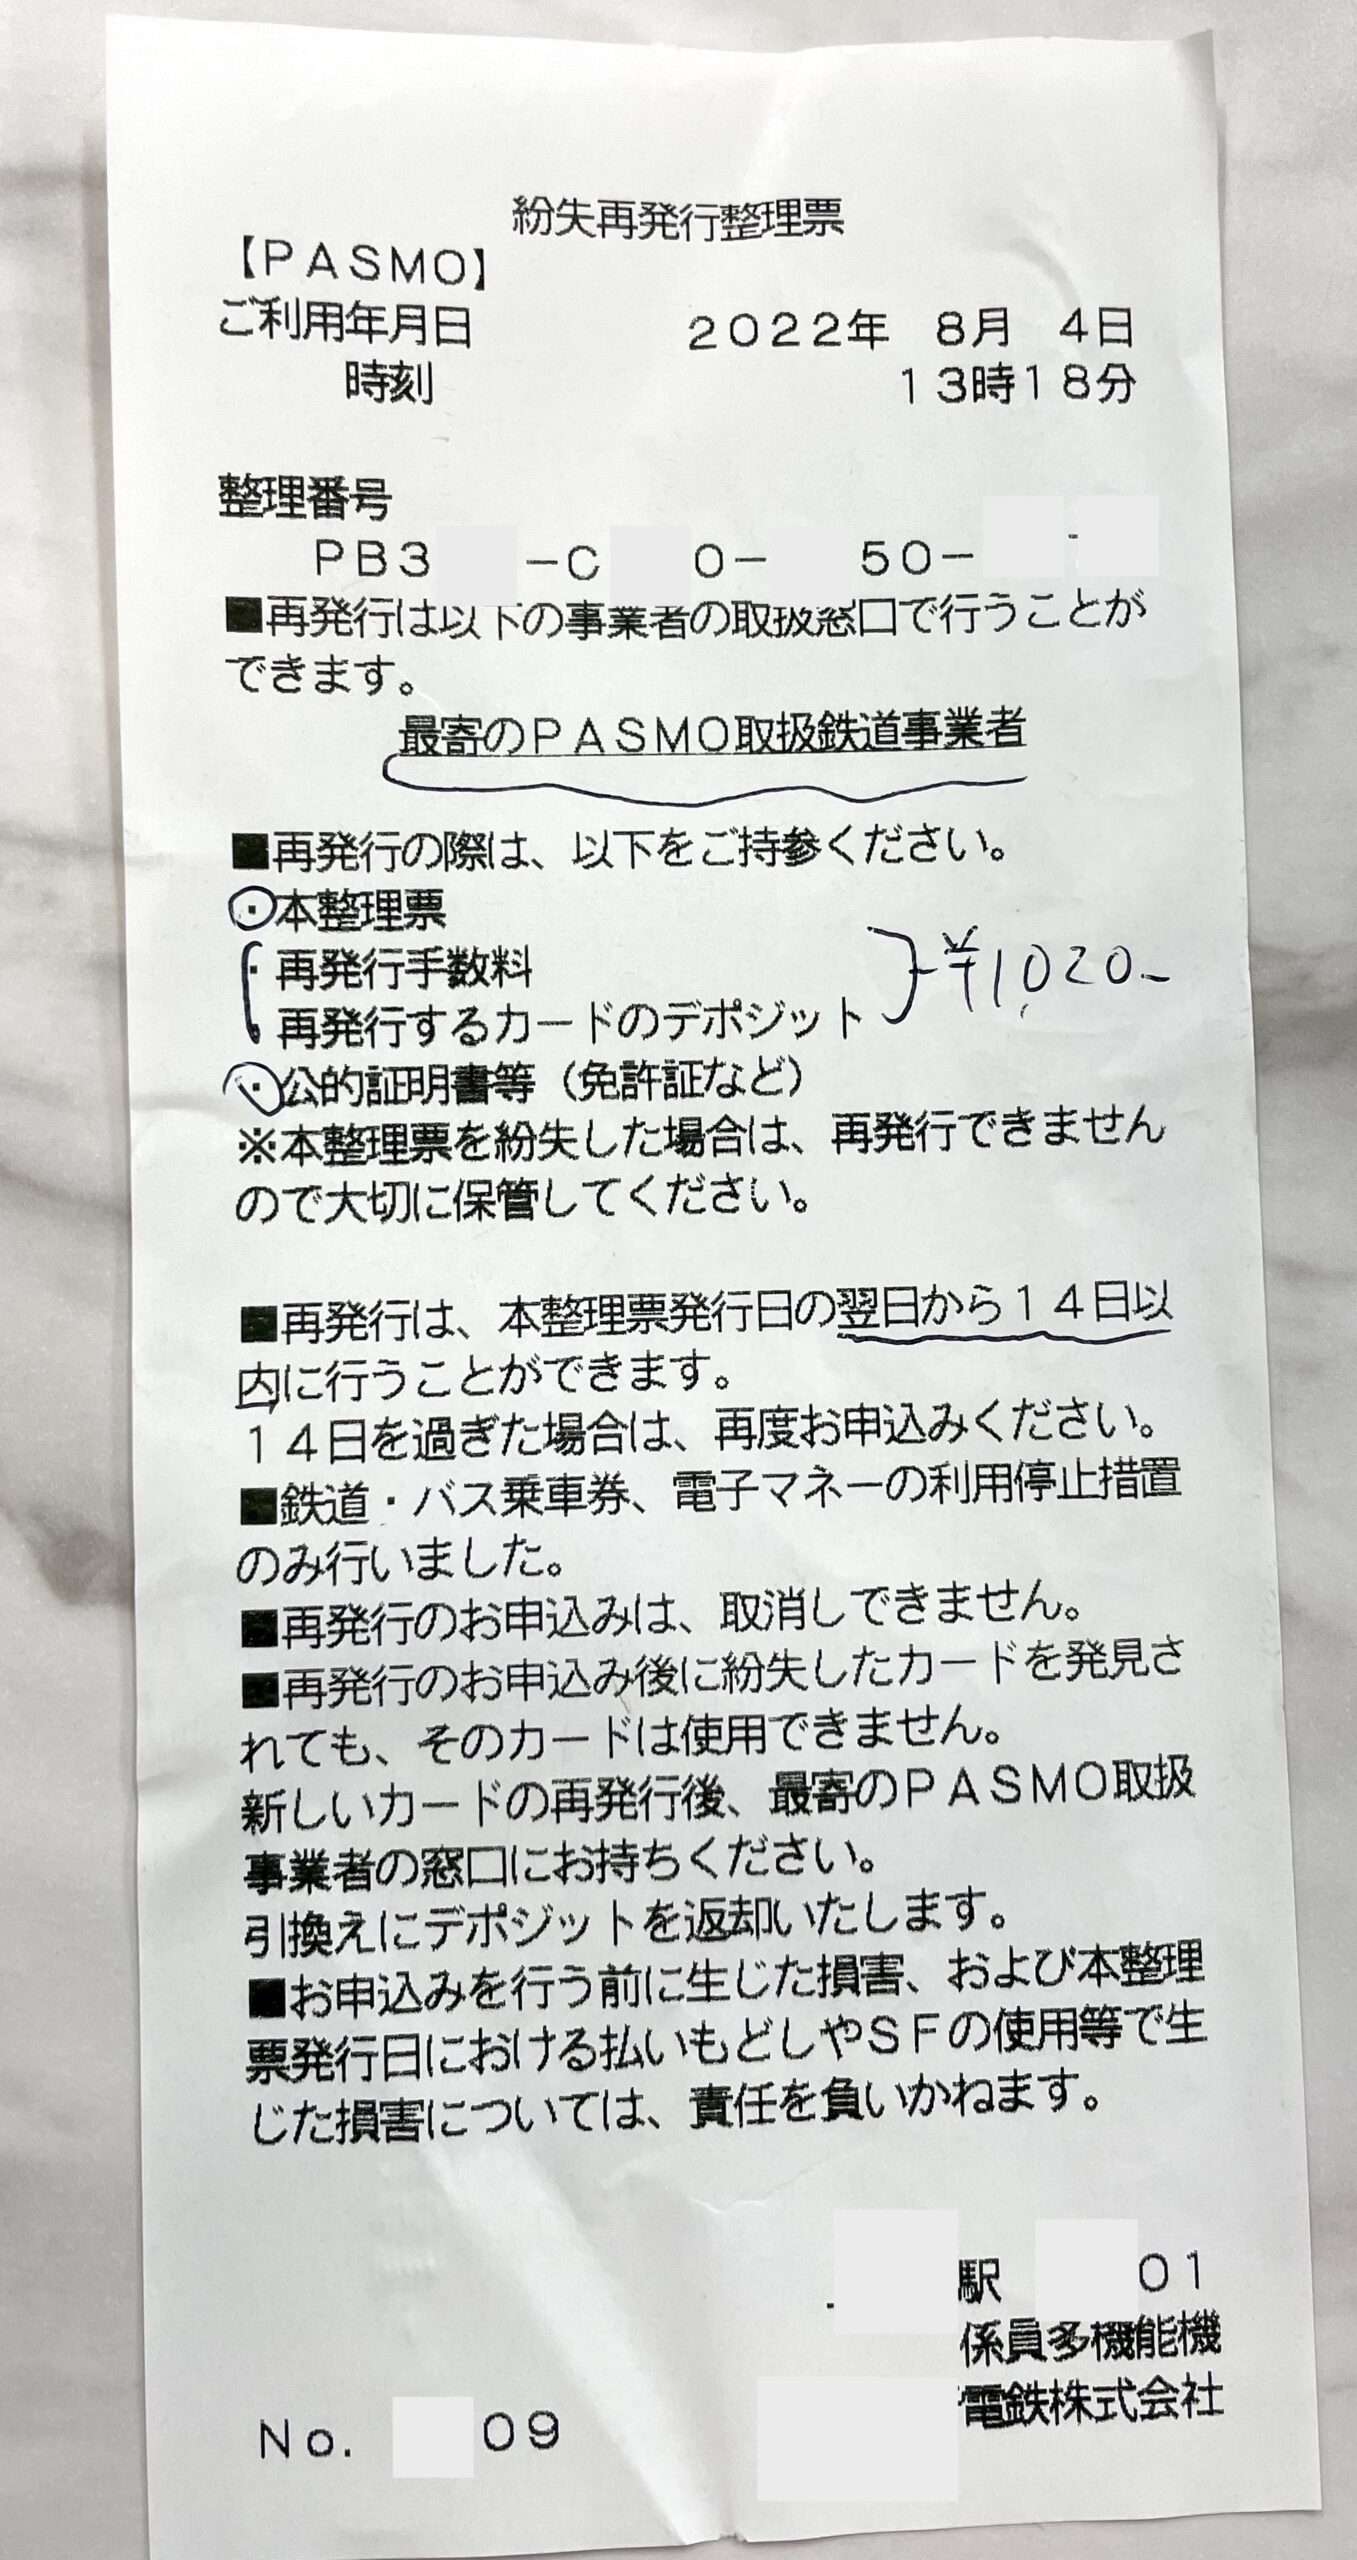 紛失再発行整理票
【PASMO】
ご利用年月日 2022年 8月 4日
時刻 13時18分
整理番号
PB3 -C 0- 50-
■再発行は以下の事業者の取扱窓口で行うことが
できます。
最寄のPASMO取扱鉄道事業者
■再発行の際は、以下をご持参ください。
・本整理票
・再発行手数料
再発行するカードのデポジット ¥1,020-
・公的証明書等（免許証など）
※本整理票を紛失した場合は、再発行できません
ので大切に保管してください。
■再発行は、本整理票発行日の翌日から14日以
内に行うことができます。
14日を過ぎた場合は、再度お申込みください。
■鉄道・バス乗車券、電子マネーの利用停止措置
のみ行いました。
■再発行のお申込みは、取消しできません。
■再発行のお申込み後に紛失したカードを発見さ
れても、そのカードは使用できません。
新しいカードの再発行後、最寄のPASMO取扱
事業者の窓口にお持ちください。
引換えにデポジットを返却いたします。
■お申込みを行う前に生じた損害、および本整理
票発行日における払いもどしやSFの使用等で生
じた損害については、責任を負いかねます。
駅 01
係員多機能機
電鉄株式会社
No. 09